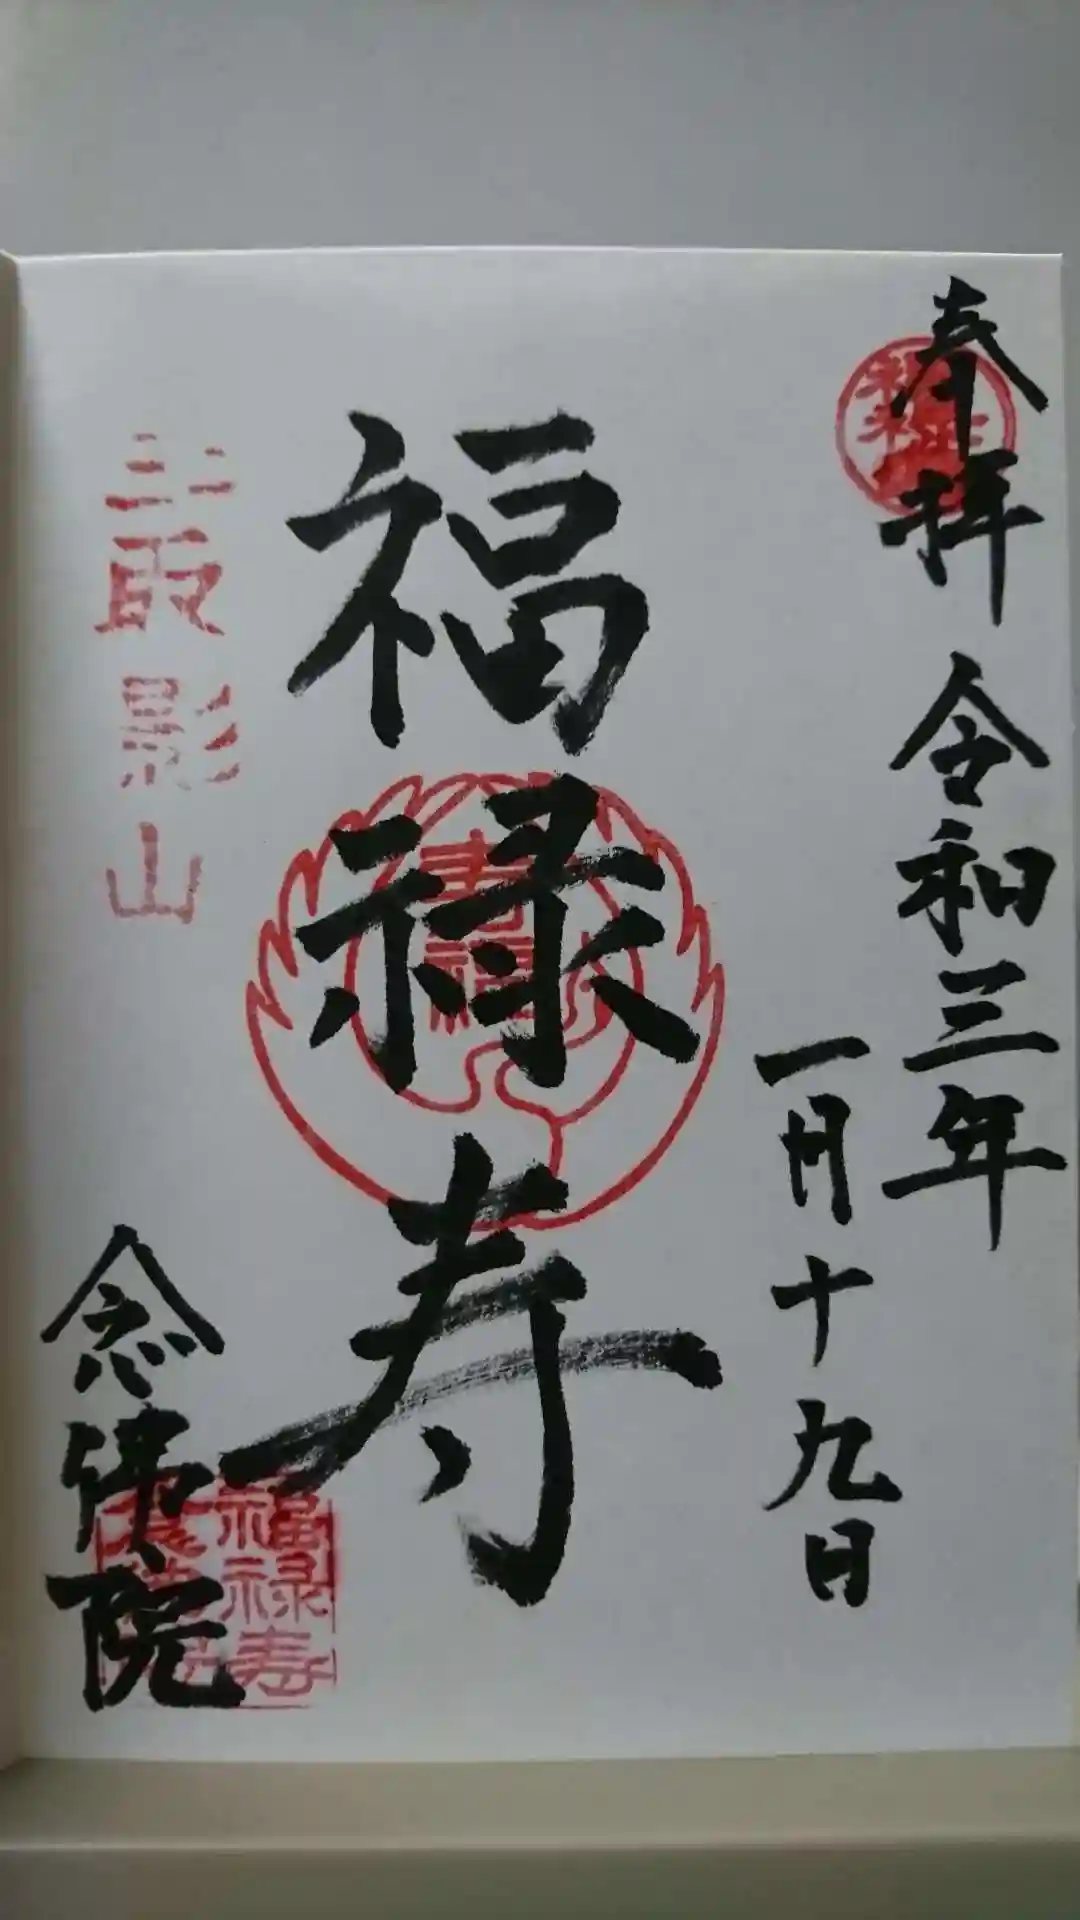 奉拝
令和三年
一月十九日
福禄寿
影山
念佛院
福禄寿